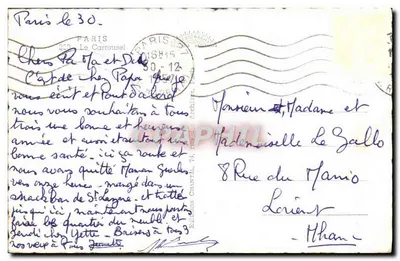 Paris le 30.
PARIS
Le Carrousel
PARIS
30-12
Chers Pa Ma et
C'est de chez Papa que je
vous écrit et tout d'abord
nous vous souhaitons à tous
trois une bonne et heureuse
année et surtout une
bonne santé. ici ça roule et
nous avons quitté Maman
vers onze heures mangé dans un
snack bar de St Lazare et
jusqu'ici, maintenant nous partons
pour le quartier du meuble et
jeudi chez Yette - Baisers à tous 3
nos vœux à tous
Monsieur et Madame et
Mademoiselle Le Gallo
8 Rue du Manio
Lorient
Mhan